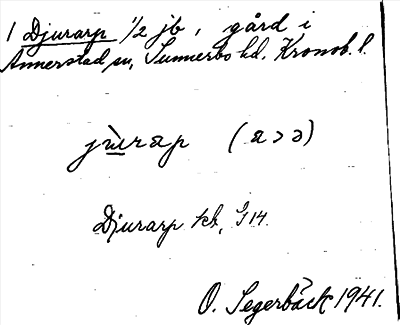 1 Djurarp 1/2 jb, gård i
Annerstad sn, Sunnerbo hd. Kronob. l.
jùrap (a>ə)
Djurarp kb, G 14.
O. Segerbäck 1941.